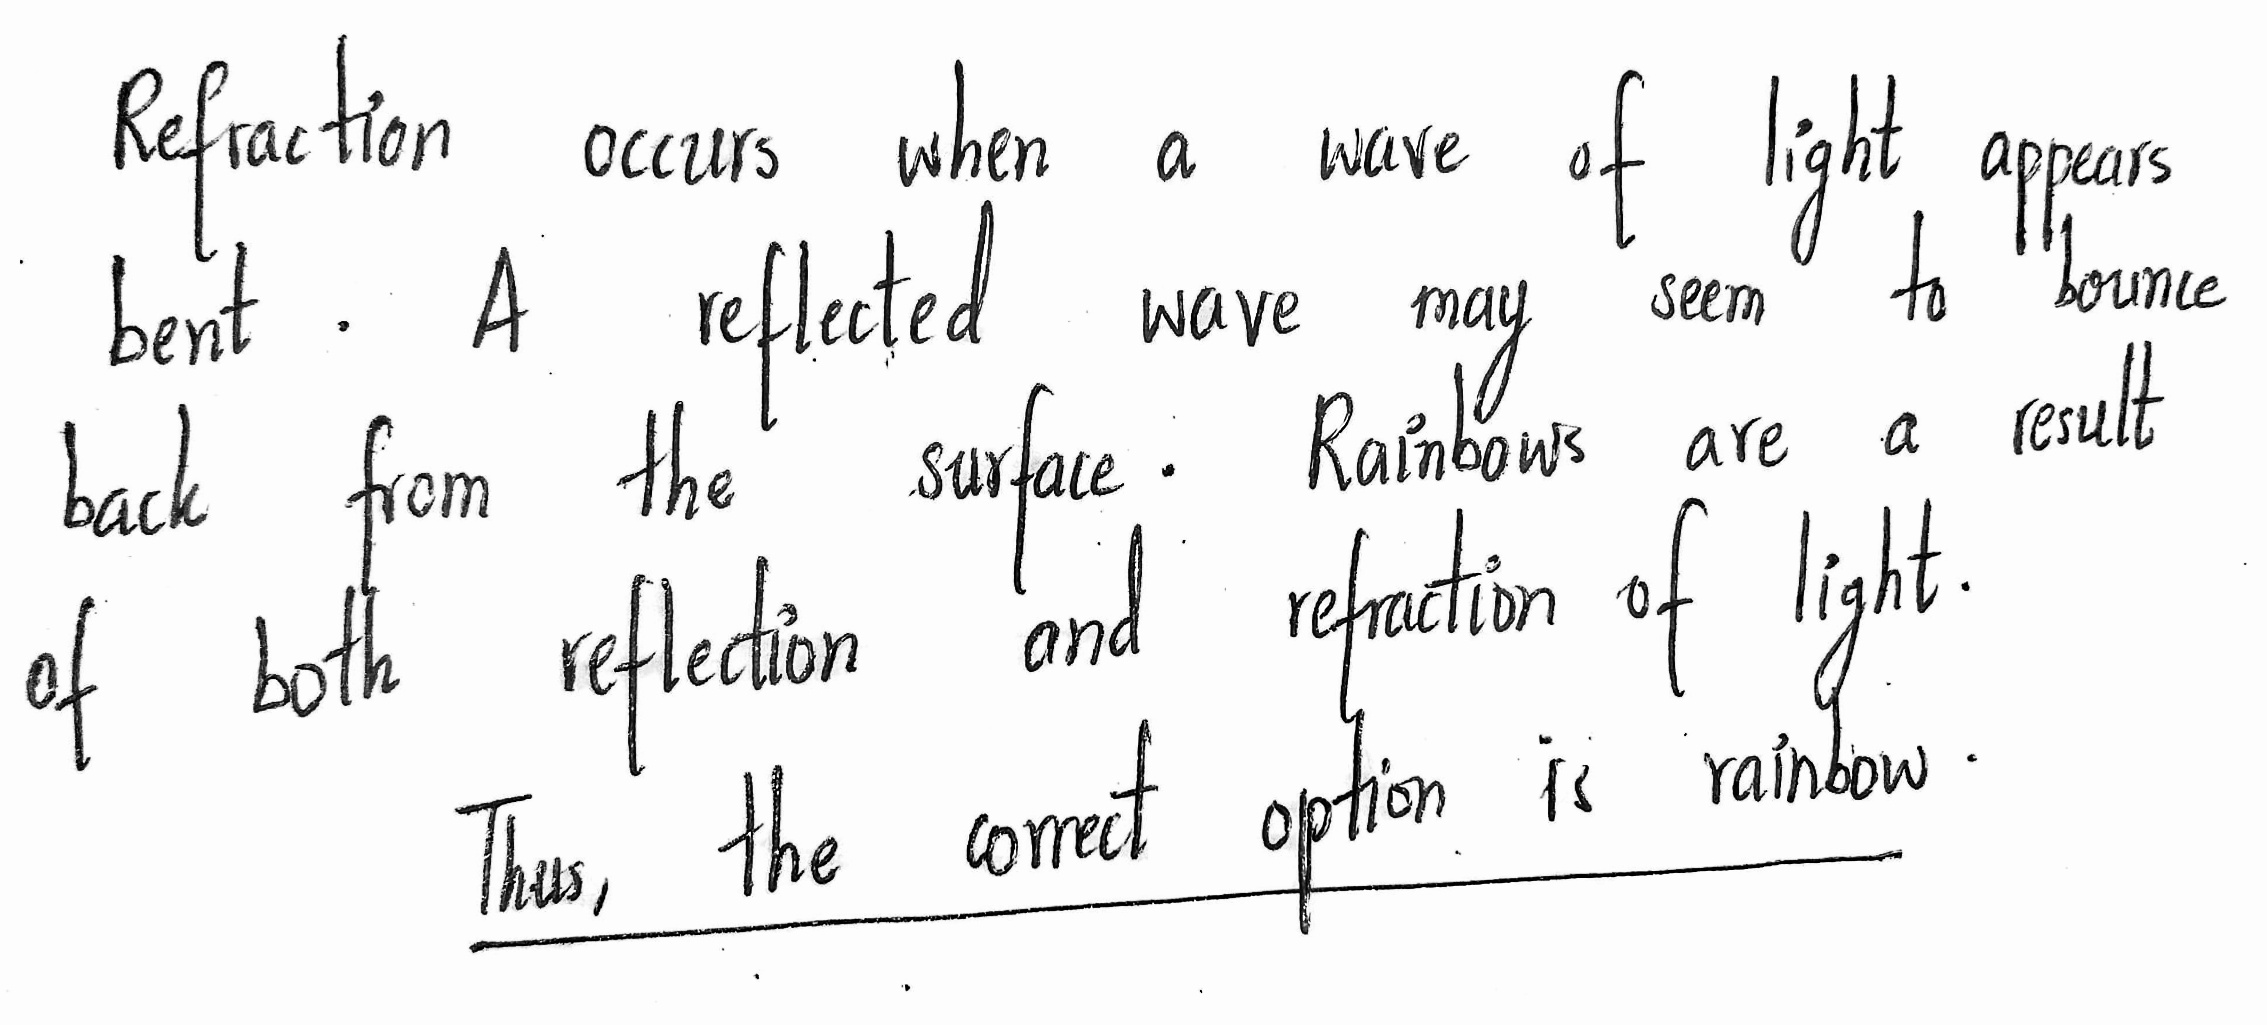 Refraction occurs when a wave of light appears
bent. A reflected wave may seem to bounce
back from the surface. Rainbows are a result
of both reflection and refraction of light.
Thus, the correct option is rainbow.